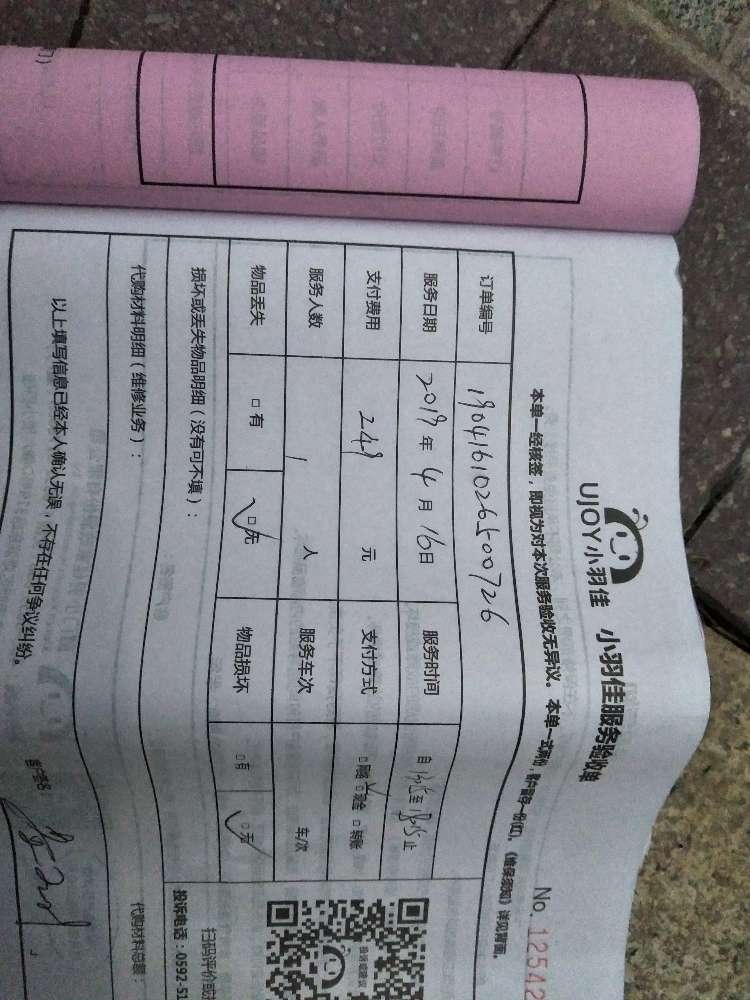 UJOY小羽佳 小羽佳服务验收单
No. 12542
本单一经核签，即视为对本次服务验收无异议。本单一式两份，客户留存一份(红)。《维保须知》详见背面。
订单编号 1904161026500726
服务日期 2019年4月16日 服务时间 自 至 止
支付费用 249 元 支付方式 □网络 □现金 □转账
服务人数 1 人 服务车次 车/次
物品丢失 □有 □无 物品损坏 □有 □无
损坏或丢失物品明细（没有可不填）：
扫码评价或
投诉电话：0592-51
代购材料明细（维修业务）： 代购材料总额：
以上填写信息已经本人确认无误，不存在任何争议纠纷。
客户签名：